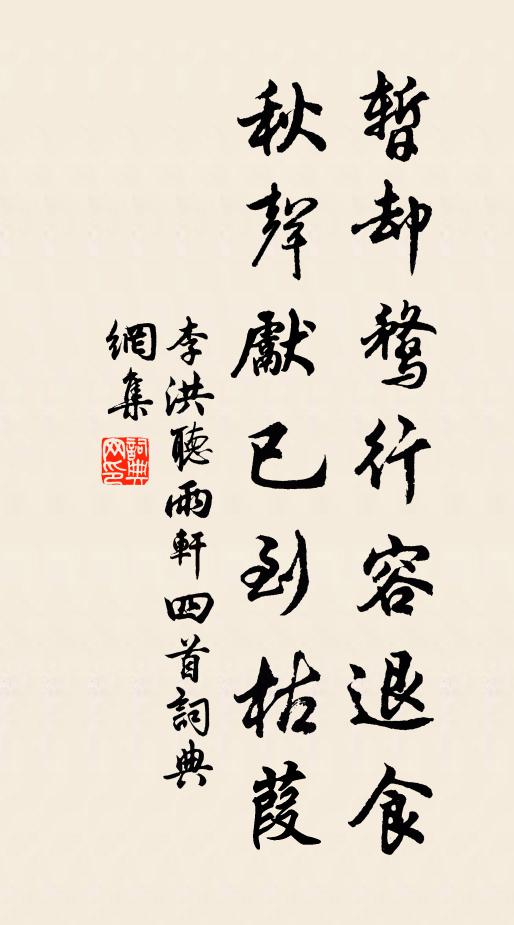 暫却鶩行容退食
秋聲獻已到枯葭
李洪聽雨軒四首詞典
網集
詞典
网印